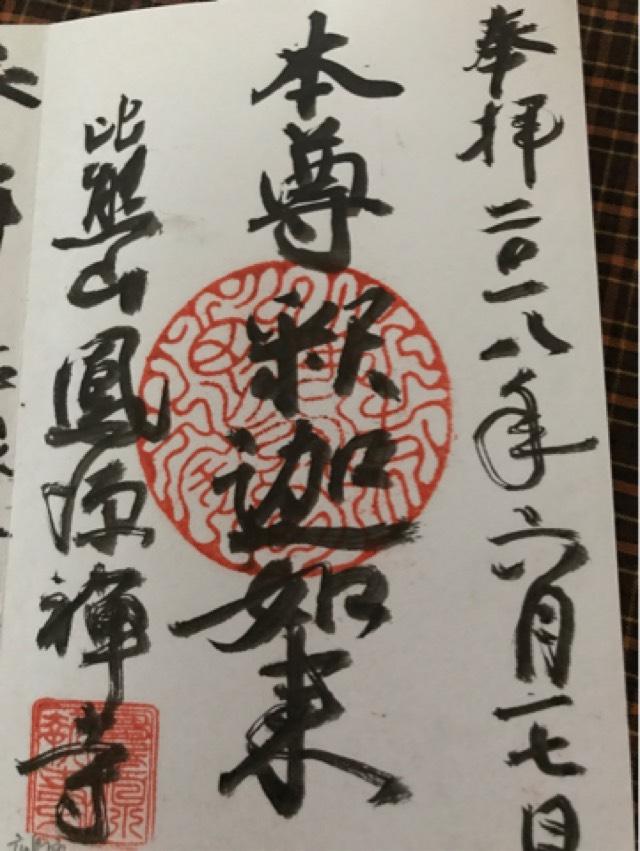 奉拝二〇一八年六月一七日
本尊釈迦如来
比熊山鳳源禅寺